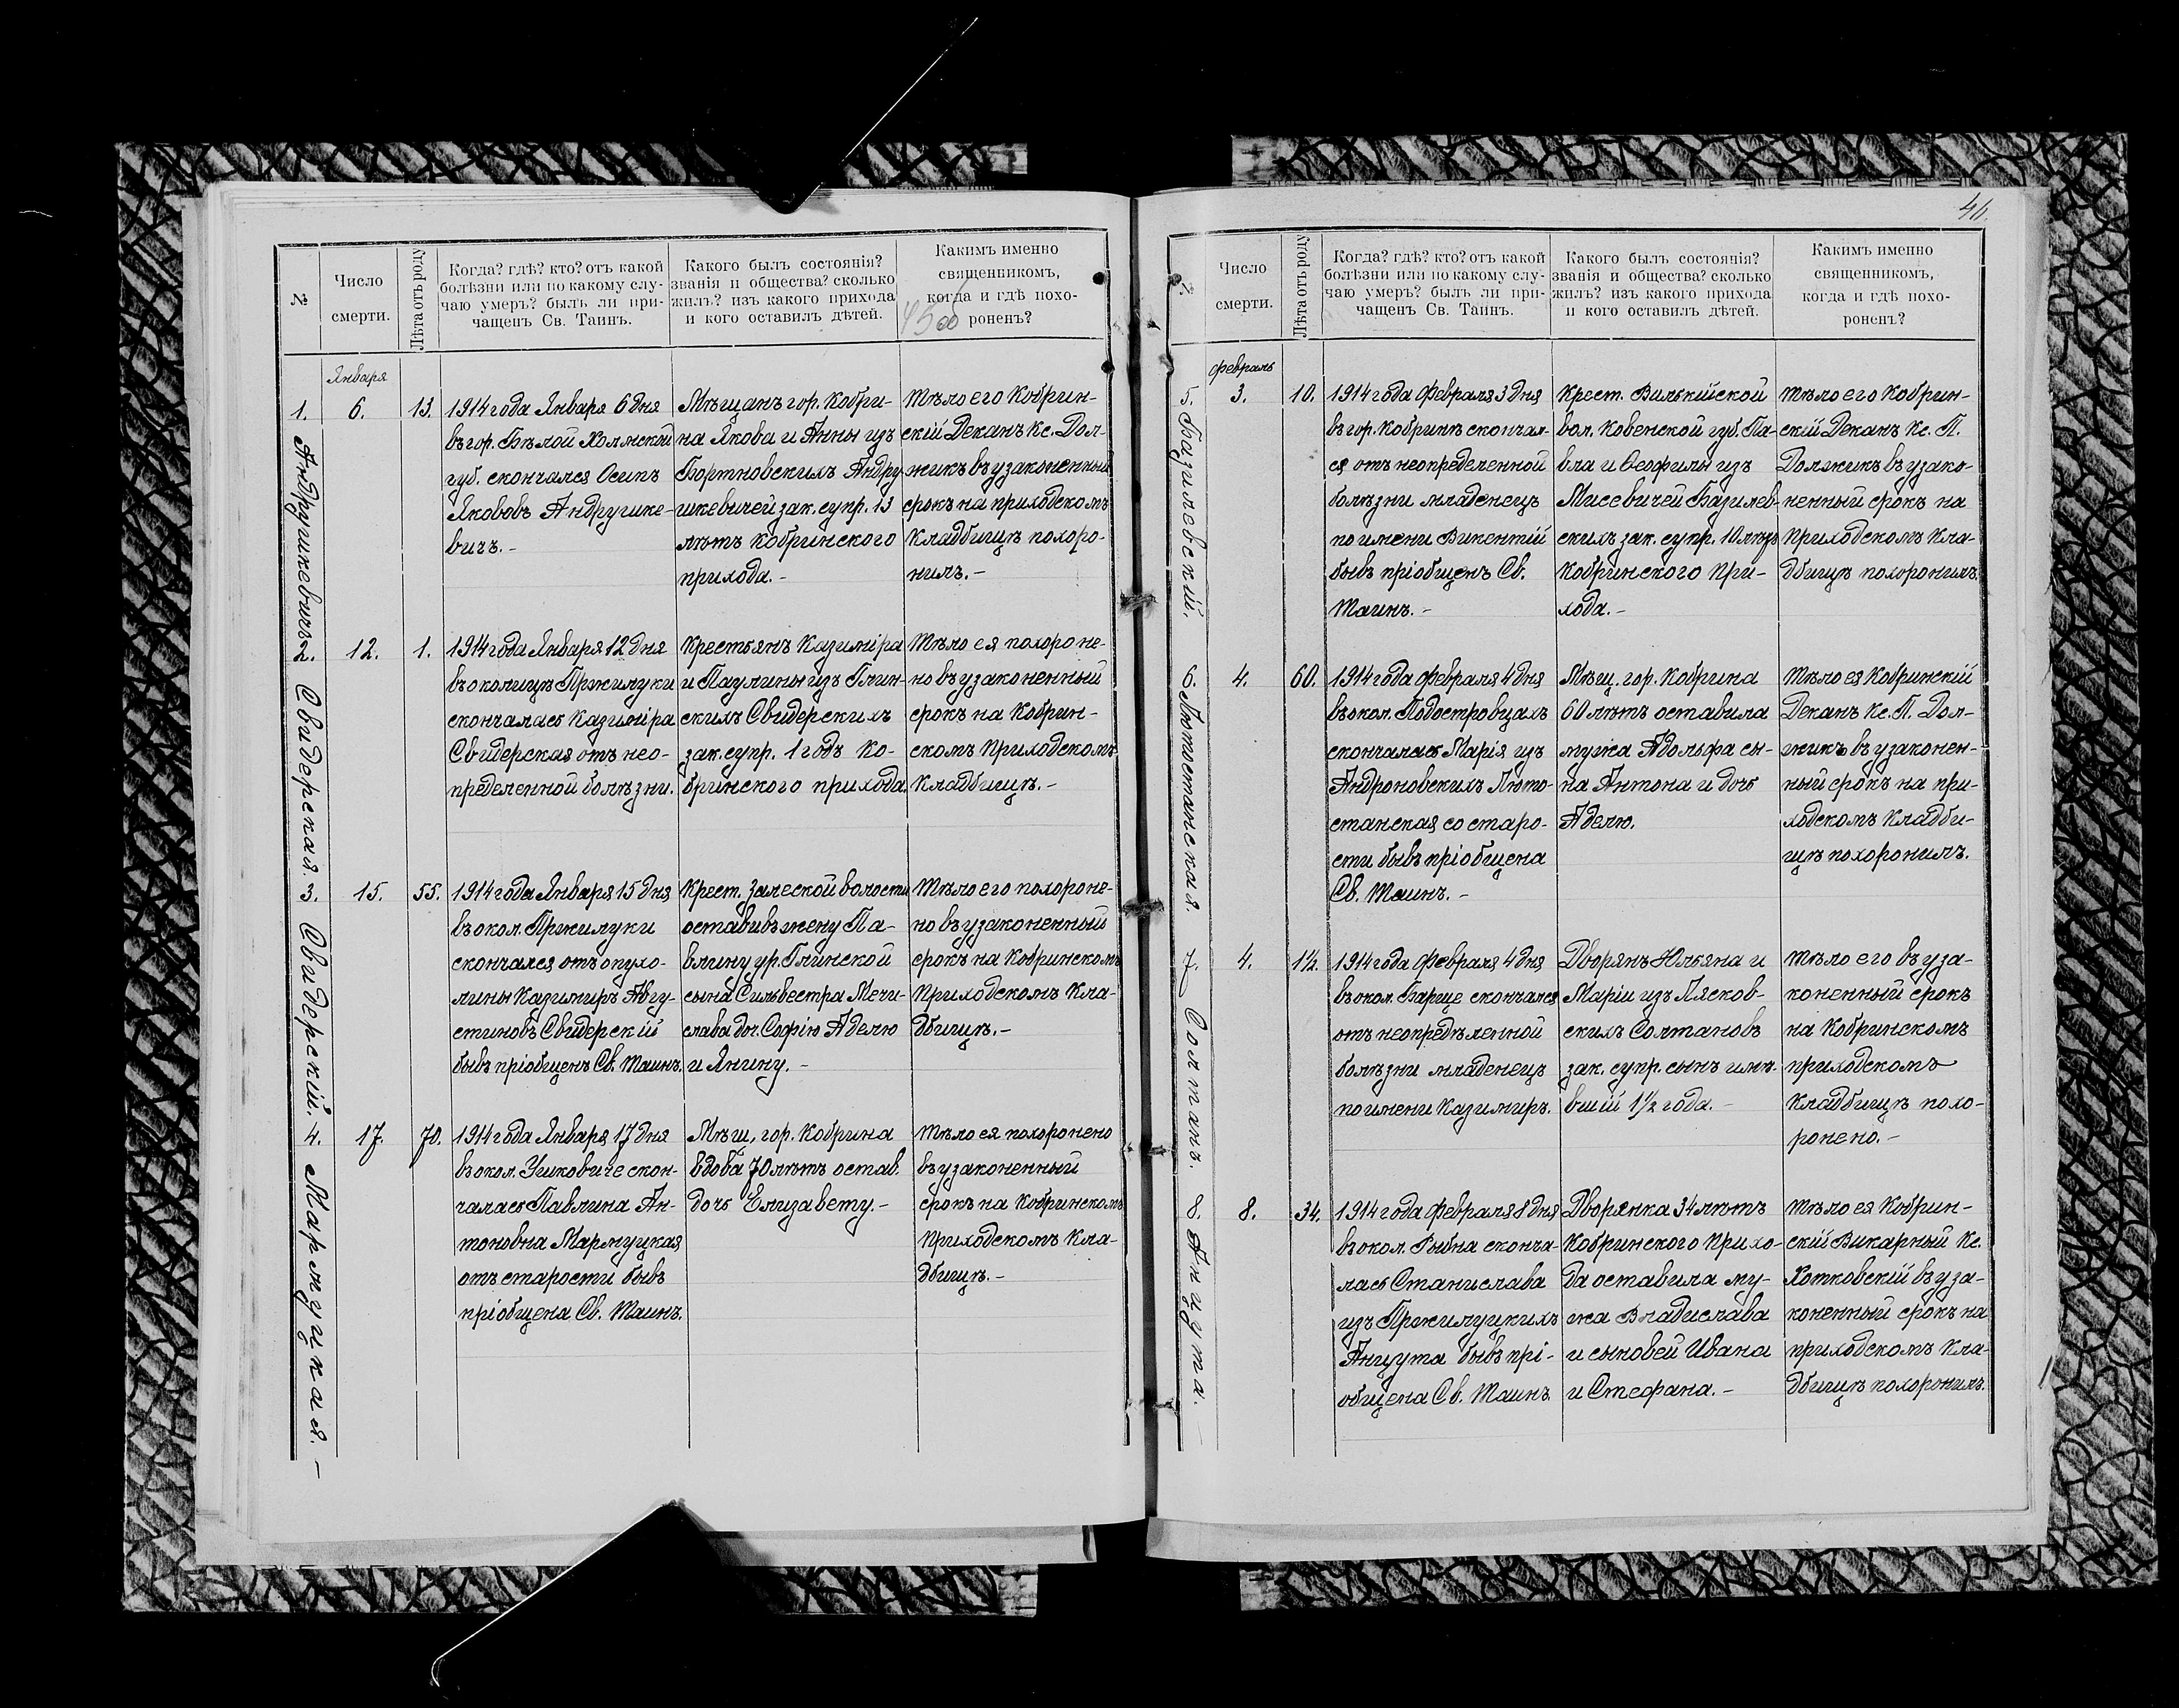 №
Число
смерти.
Лѣта отъ роду
Когда? гдѣ? кто? отъ какой
болѣзни или по какому слу-
чаю умеръ? былъ ли при-
чащенъ Св. Таинъ.
Какого былъ состоянія?
званія и общества? сколько
жилъ? изъ какого прихода
и кого оставилъ дѣтей.
Какимъ именно
священникомъ,
когда и гдѣ похо-
роненъ?
Января
1.
Андрушкевичъ
6.
13.
1914 года Января 6 дня
въ гор. Бѣлой Холмской
губ. скончался Осипъ
Яковъ Андрушке-
вичъ.-
Мѣщанъ гор. Кобри-
на Якова и Анны изъ
Бортновскихъ Андру-
шкевичей зак. супр. 13
лѣтъ Кобринского
прихода.-
Тѣло его Кобрин-
скій Деканъ Кс. Дол-
жикъ въ узаконенный
срокъ на приходскомъ
Кладбищѣ похоро-
нилъ.-
2.
Свидерская.
12.
1.
1914 года Января 12 дня
въ околицѣ Пржилуки
скончалась Казиміра
Свидерская отъ нео-
пределенной болѣзни.
Крестьянъ Казиміра
и Паулины изъ Глин-
скихъ Свидерскихъ
зак. супр. 1 годъ Ко-
бринского прихода.
Тѣло ея похороне-
но въ узаконенный
срокъ на Кобрин-
скомъ Приходскомъ
Кладбищѣ.-
3.
Свидерскій.
15.
55.
1914 года Января 15 дня
въ окол. Пржилуки
скончался отъ опухо-
лины Казимиръ Авгу-
стиновъ Свидерскій
бывъ пріобщенъ Св. Таинъ.
Крест. Залеской волости
оставивъ жену Па-
влину ур. Глинской
сына Сильвестра Мечи-
слава доч. Софію Аделю
и Янину.-
Тѣло его похороне-
но въ узаконенный
срокъ на Кобринскомъ
Приходскомъ Кла-
дбищѣ.-
4.
Мармуцкая.-
17.
70.
1914 года Января 17 дня
въ окол. Зиковиче скон-
чалась Павлина Ан-
тоновна Мармуцкая
отъ старости бывъ
пріобщена Св. Таинъ.
Мѣщ. гор. Кобрина
вдова 70 лѣтъ остав.
дочь Елизавету.-
Тѣло ея похоронено
въ узаконенный
срокъ на Кобринскомъ
Приходскомъ Кла-
дбищѣ.-
46.
№
Число
смерти.
Лѣта отъ роду
Когда? гдѣ? кто? отъ какой
болѣзни или по какому слу-
чаю умеръ? былъ ли при-
чащенъ Св. Таинъ.
Какого былъ состоянія?
званія и общества? сколько
жилъ? изъ какого прихода
и кого оставилъ дѣтей.
Какимъ именно
священникомъ,
когда и гдѣ похо-
роненъ?
февраль
5.
Базилевскій.
3.
10.
1914 года Февраля 3 дня
въ гор. Кобринѣ скончал-
ся отъ неопределенной
болѣзни младенецъ
по имени Викентій
бывъ пріобщенъ Св.
Таинъ.-
Крест. Вилькійской
вол. Ковенской губ. Па-
вла и Ѳеофилы изъ
Мисевичей Базилев-
скихъ зак. супр. 10 лѣтъ
Кобринского При-
хода.-
Тѣло его Кобрин-
скій Деканъ Кс. П.
Должикъ въ узако-
ненный срокъ на
Приходскомъ Кла-
дбищѣ похоронилъ.
6.
Лютостанская.
4.
60.
1914 года Февраля 4 дня
въ окол. Подостровцахъ
скончалась Марія изъ
Андроновскихъ Люто-
станская со старо-
сти бывъ пріобщена
Св. Таинъ.-
Мѣщ. гор. Кобрина
60 лѣтъ оставила
мужа Адольфа сы-
на Антона и дочь
Аделю.
Тѣло ея Кобринскій
Деканъ Кс. П. Дол-
жикъ въ узаконен-
ный срокъ на при-
ходскомъ Кладби-
щѣ похоронилъ.
7.
Солтанъ.
4.
1½.
1914 года Февраля 4 дня
въ окол. Барще скончался
отъ неопредѣленной
болѣзни младенецъ
по имени Казимиръ.
Дворянъ Юльяна и
Маріи изъ Лясков-
скихъ Солтановъ
зак. супр. сынъ имѣ-
вшій 1½ года.-
Тѣло его въ уза-
коненный срокъ
на Кобринскомъ
приходскомъ
Кладбищѣ похо-
ронено.-
8.
Анцута.-
8.
34.
1914 года Февраля 8 дня
въ окол. Рыбна сконча-
лась Станислава
изъ Пржилуцкихъ
Анцута бывъ прі-
общена Св. Таинъ.
Дворянка 34 лѣтъ
Кобринского Прихо-
да оставила му-
жа Владислава
и сыновей Ивана
и Стефана.-
Тѣло ея Кобрин-
скій Викарный Кс.
Хотковскій въ уза-
коненный срокъ на
приходскомъ Кла-
дбищѣ похоронилъ.